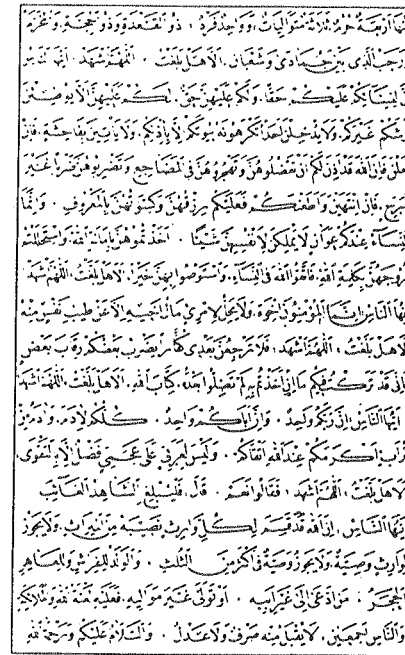 منها أربعة حرم ثلاثة متواليات وواحد فرد : ذو القعدة وذو حجة والمحرم
ورجب الذي بين جمادى وشعبان . ألا هل بلغت . اللهم اشهد . أيها الناس
إن لنسائكم عليكم حقا . ولكم عليهن حق . لكم عليهن ألا يوطئن
فرشكم غيركم ولا يدخلن أحدا تكرهونه بيوتكم إلا بإذنكم . ولا يأتين بفاحشة . فإن
فعلن فإن الله قد أذن لكم أن تعضلوهن وتهجروهن في المضاجع وتضربوهن ضربا غير
مبرح . فإن انتهين وأطعنكم فعليكم رزقهن وكسوتهن بالمعروف . وإنما
النساء عندكم عوان لا يملكن لأنفسهن شيئا . أخذتموهن بأمانة الله واستحللتم
فروجهن بكلمة الله . فاتقوا الله في النساء . واستوصوا بهن خيرا . ألا هل بلغت . اللهم اشهد
أيها الناس إنما المؤمنون إخوة . ولا يحل لامرئ مال أخيه إلا عن طيب نفس منه
ألا هل بلغت : اللهم اشهد : فلا ترجعن بعدى كفارا يضرب بعضكم رقاب بعض
فإنى قد تركت فيكم ما إن أخذتم به لم تضلوا بعده . كتاب الله . ألا هل بلغت . اللهم اشهد
أيها الناس : إن ربكم واحد . وإن أباكم واحد . كلكم لآدم . وآدم من
تراب أكرمكم عند الله أتقاكم . وليس لعربي على عجمي فضل إلا بالتقوى .
ألا هل بلغت : اللهم اشهد : فقالوا نعم . قال . فليبلغ الشاهد الغائب
أيها الناس . إن الله قد قسم لكل وارث نصيبه من الميراث . ولا يجوز
لوارث وصية . ولا يجوز وصية في أكثر من الثلث . والولد للفراش وللعاهر
الحجر : من ادعى إلى غير أبيه . أو تولى غير مواليه . فعليه لعنة الله والملائكة
والناس أجمعين . لا يقبل منه صرف ولا عدل . والسلام عليكم ورحمة الله